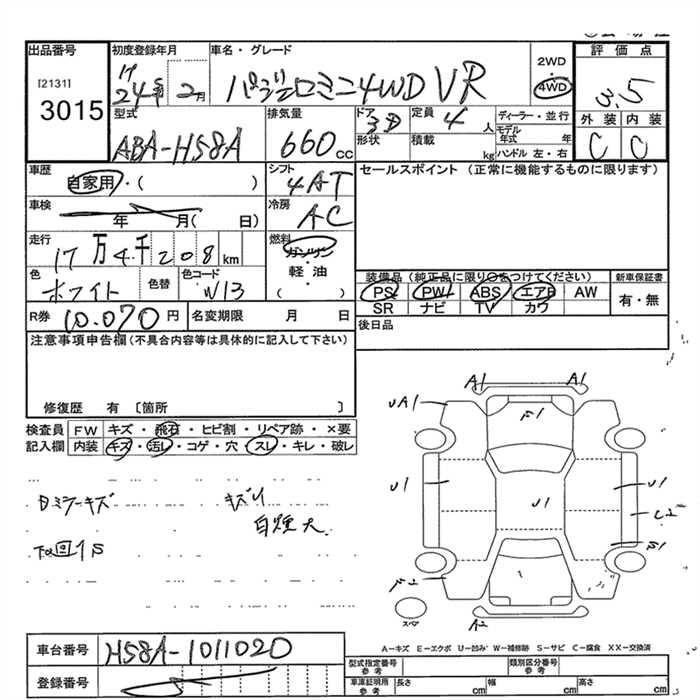 出品番号
[2131]
3015
初度登録年月
24年 2月
車名・グレード
パジェロミニ4WD VR
2WD
4WD
評価点
3.5
外装 内装
C C
型式
ABA-H58A
排気量
660 cc
ドア
3D
形状
定員
4 人
積載
kg
ディーラー・並行
モデル年式 年
ハンドル 左・右
車歴
自家用・( )
シフト
4AT
セールスポイント (正常に機能するものに限ります)
車検
年 月( 日)
冷房
AC
走行
17万4千208 km
燃料
ガソリン
軽・油
( )
色
ホワイト
色替
色コード
W13
装備品 (純正品に限り○をつけてください)
PS PW ABS エアB AW
SR ナビ TV カワ
新車保証書
有・無
R券 10.070 円
名変期限 月 日
後日品
注意事項申告欄(不具合内容等は具体的に記入して下さい)
修復歴 有 〔箇所 〕
検査員記入欄
FW キズ・飛石・ヒビ割・リペア跡・×要
内装 キズ・汚レ・コゲ・穴・スレ・キレ・破レ
キズ
A1 A1
UA1
F1
U1
U1
U1
C2
S1
A2
スペア
A-キズ E-エクボ U-凹み W-補修跡 S-サビ C-腐食 XX-交換済
車台番号
H58A-1011020
登録番号
型式指定番号
参考
類別区分番号
参考
車庫証明用
参考
長さ cm
幅 cm
高さ cm